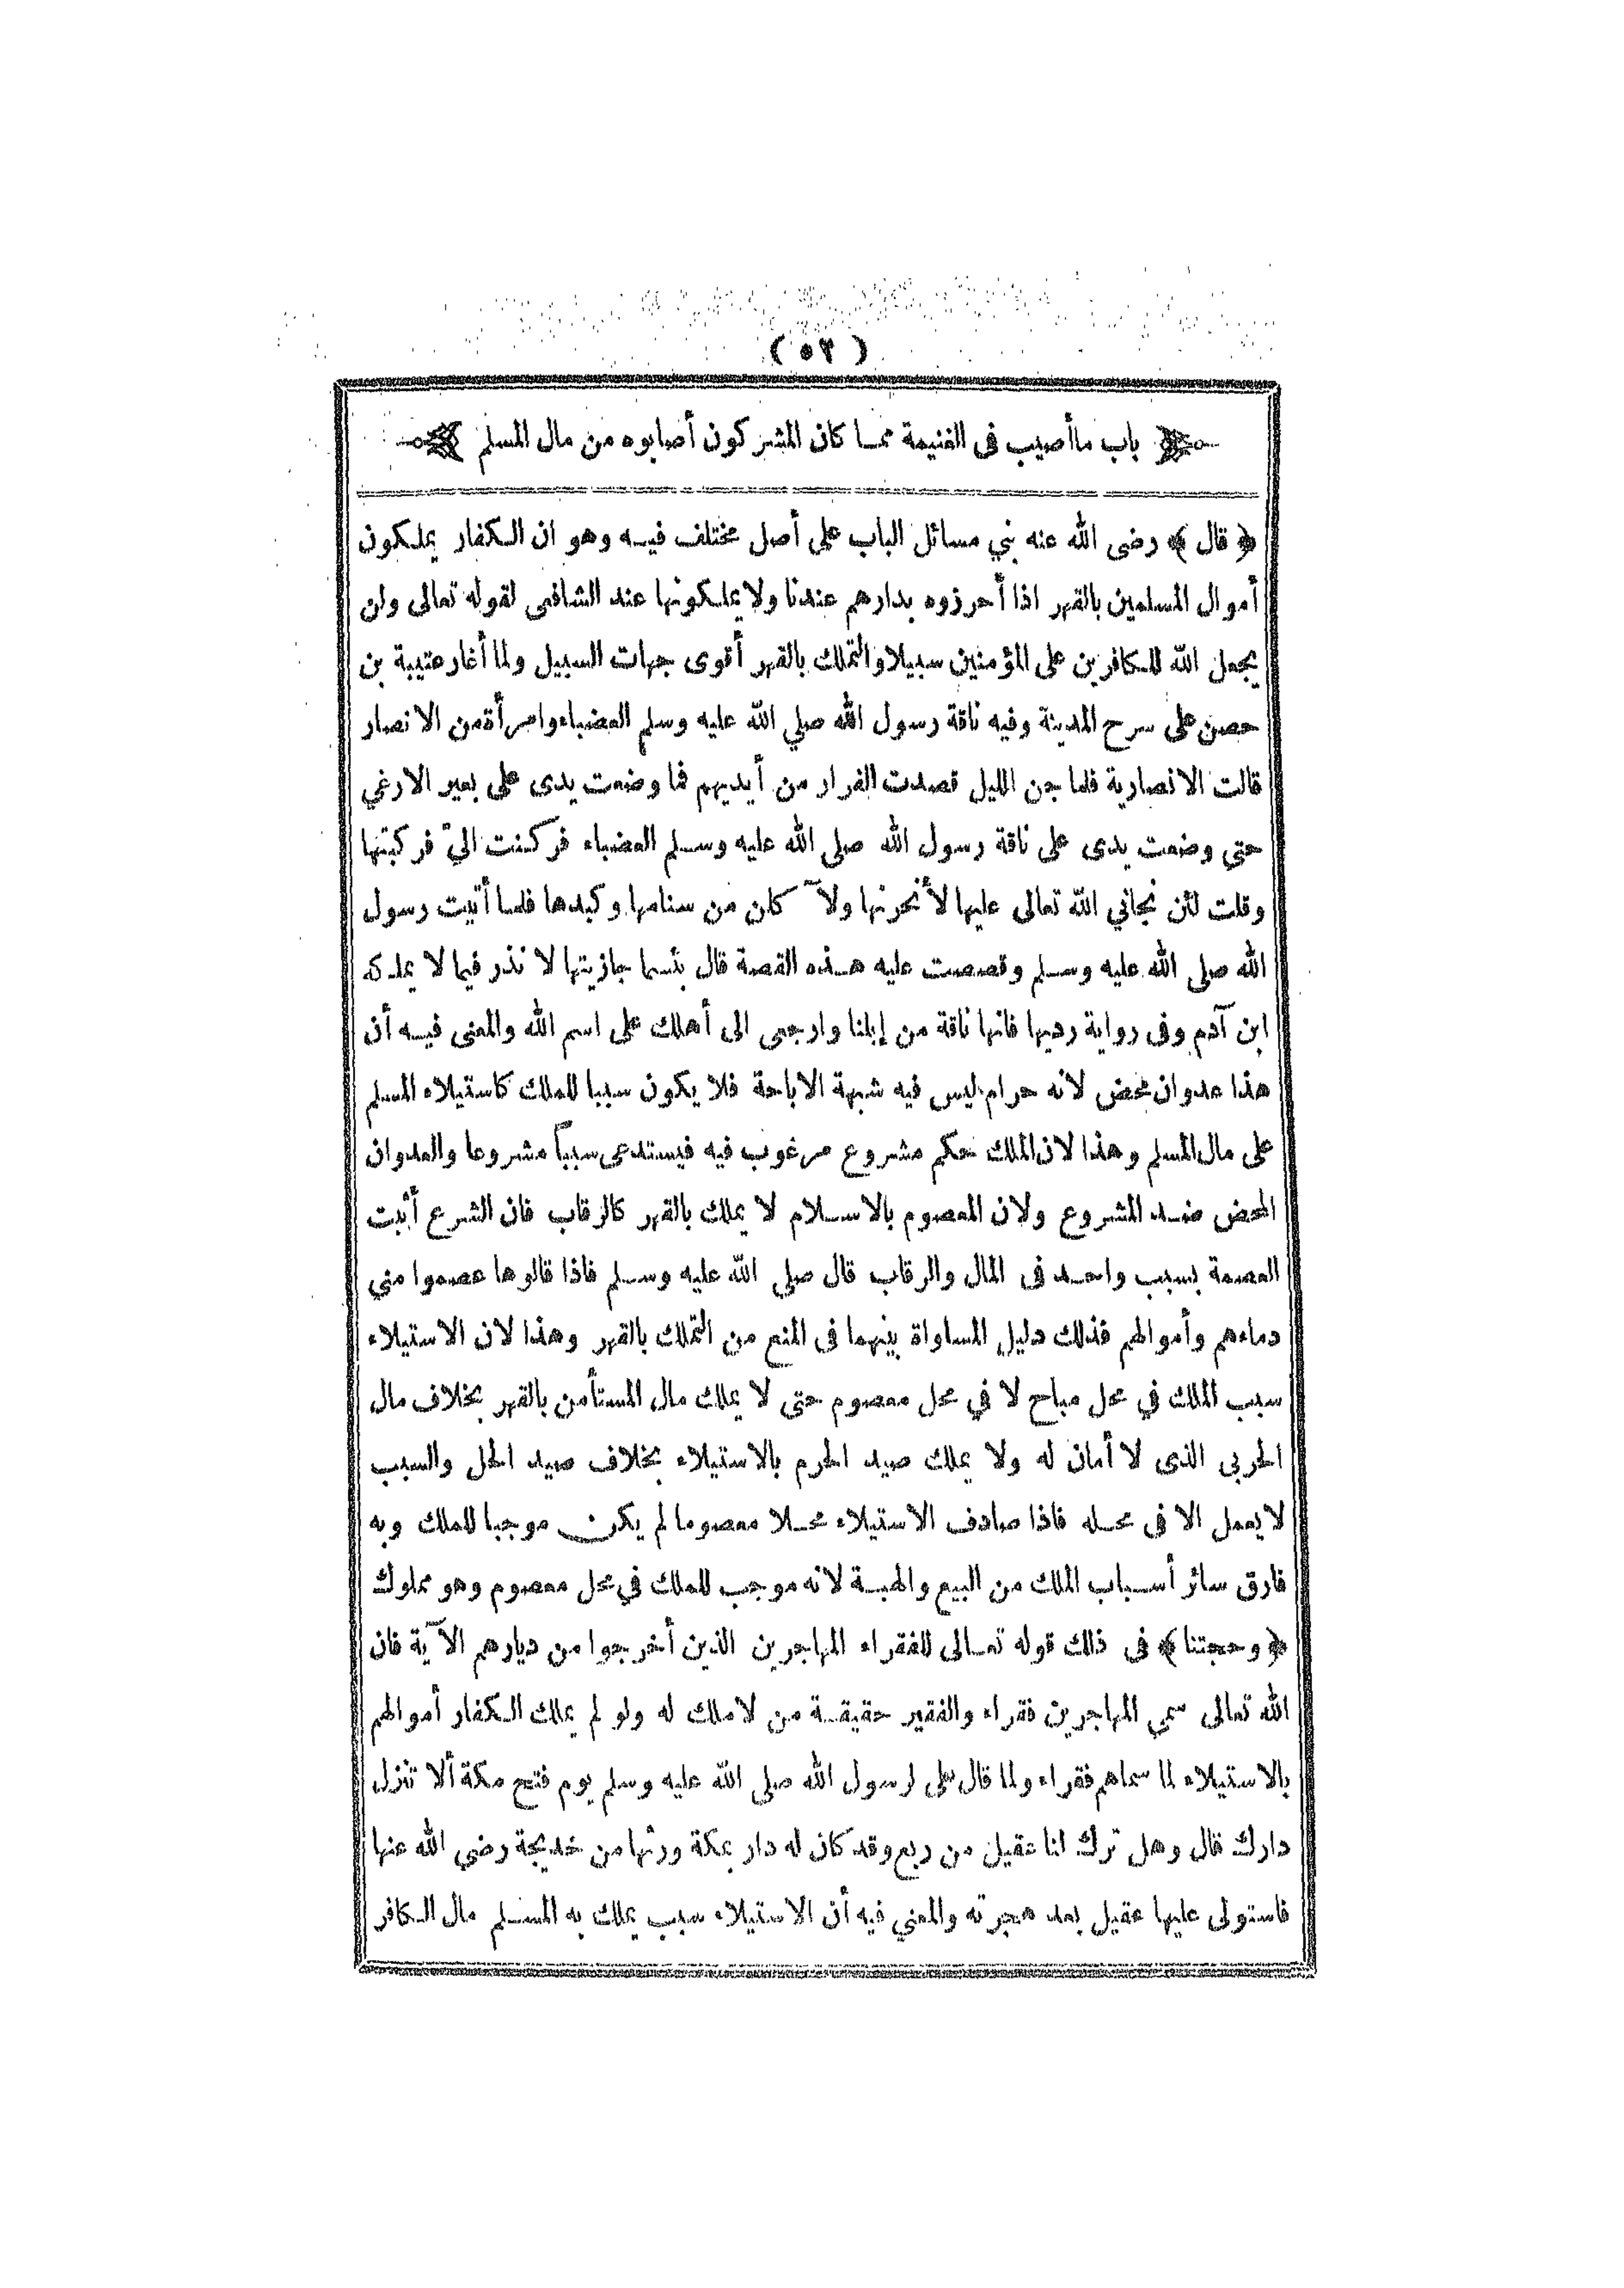 ( ٥٢ )
باب ماأصيب فى الغنيمة مما كان المشركون أصابوه من مال المسلم
﴿ قال ﴾ رضى الله عنه بني مسائل الباب على أصل مختلف فيه وهو ان الكفار يملكون
أموال المسلمين بالقهر اذا أحرزوه بدارهم عندنا ولا يملكونها عند الشافعى لقوله تعالى ولن
يجعل الله للكافرين على المؤمنين سبيلا والتملك بالقهر أقوى جهات السبيل ولما أغار عتيبة بن
حصن على سرح المدينة وفيه ناقة رسول الله صلي الله عليه وسلم العضباء وامرأة من الانصار
قالت الانصارية فلما جن الليل قصدت الفرار من أيديهم فما وضعت يدى على بعير الارغي
حتي وضعت يدى على ناقة رسول الله صلى الله عليه وسلم العضباء فركنت اليّ فركبتها
وقلت لئن نجاني الله تعالى عليها لأنحرنها ولآ كلن من سنامها وكبدها فلما أتيت رسول
الله صلى الله عليه وسلم وقصصت عليه هذه القصة قال بئسما جازيتها لا نذر فيما لا يملكه
ابن آدم وفى رواية رديها فانها ناقة من إبلنا وارجعى الى أهلك على اسم الله والمعنى فيه أن
هذا عدوان محض لانه حرام ليس فيه شبهة الاباحة فلا يكون سببا للملك كاستيلاء المسلم
على مال المسلم وهذا لان الملك حكم مشروع مرغوب فيه فيستدعى سبباً مشروعا والعدوان
المحض ضد المشروع ولان المعصوم بالاسلام لا يملك بالقهر كالرقاب فان الشرع أثبت
العصمة بسبب واحد فى المال والرقاب قال صلي الله عليه وسلم فاذا قالوها عصموا مني
دماءهم وأموالهم فذلك دليل المساواة بينهما فى المنع من التملك بالقهر وهذا لان الاستيلاء
سبب الملك في محل مباح لا في محل معصوم حتى لا يملك مال المستأمن بالقهر بخلاف مال
الحربى الذى لا أمان له ولا يملك صيد الحرم بالاستيلاء بخلاف صيد الحل والسبب
لا يعمل الا فى محله فاذا صادف الاستيلاء محلا معصوما لم يكن موجبا للملك وبه
فارق سائر أسباب الملك من البيع والهبة لانه موجب للملك في محل معصوم وهو مملوك
﴿ وحجتنا ﴾ فى ذلك قوله تعالى للفقراء المهاجرين الذين أخرجوا من ديارهم الآية فان
الله تعالى سمي المهاجرين فقراء والفقير حقيقة من لا ملك له ولو لم يملك الكفار أموالهم
بالاستيلاء لما سماهم فقراء ولما قال على لرسول الله صلى الله عليه وسلم يوم فتح مكة ألا تنزل
دارك قال وهل ترك لنا عقيل من ربع وقد كان له دار بمكة ورثها من خديجة رضي الله عنها
فاستولى عليها عقيل بعد هجرته والمعني فيه أن الاستيلاء سبب يملك به المسلم مال الكافر